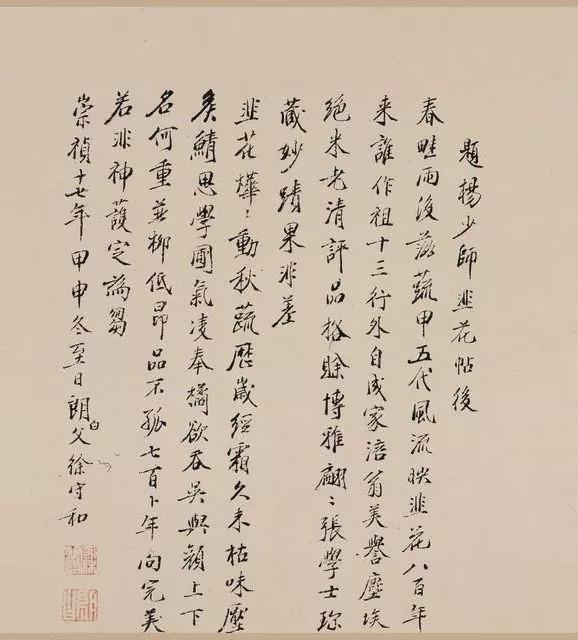 題楊少師韭花帖後
春畦雨後茁蔬甲五代風流映韭花八百年
来誰作祖十三行外自成家涪翁美譽塵埃
絕米老清評品格賒博雅翩〻張學士珎
蔵妙蹟果非差
韭花韡〻動秋蔬歷歲經霜久未枯味壓
矦鯖思學圃氣凌奉橘欲吞吳與顏上下
名何重並柳低昂品不孤七百卜年尚完美
若非神護定為芻
崇禎十七年甲申冬至日朗白父徐守和